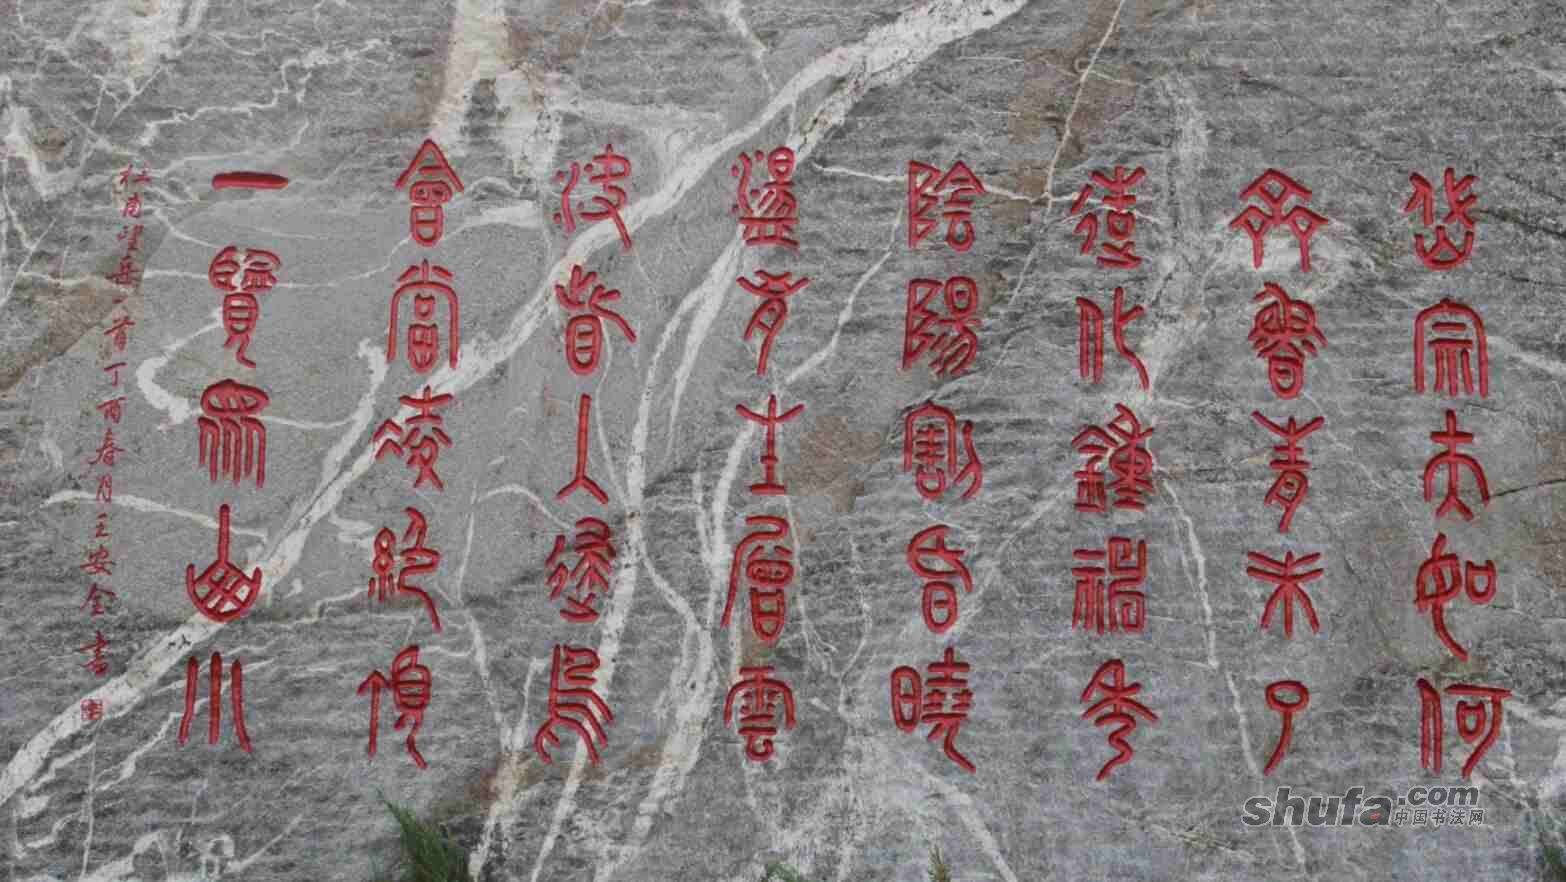 岱宗夫如何
齊魯青未了
造化鍾神秀
陰陽割昏曉
盪胸生層雲
決眥入歸鳥
會當凌絕頂
一覽眾山小
杜甫望岳一首丁酉春月王安金書
shufa.com
中国书法网